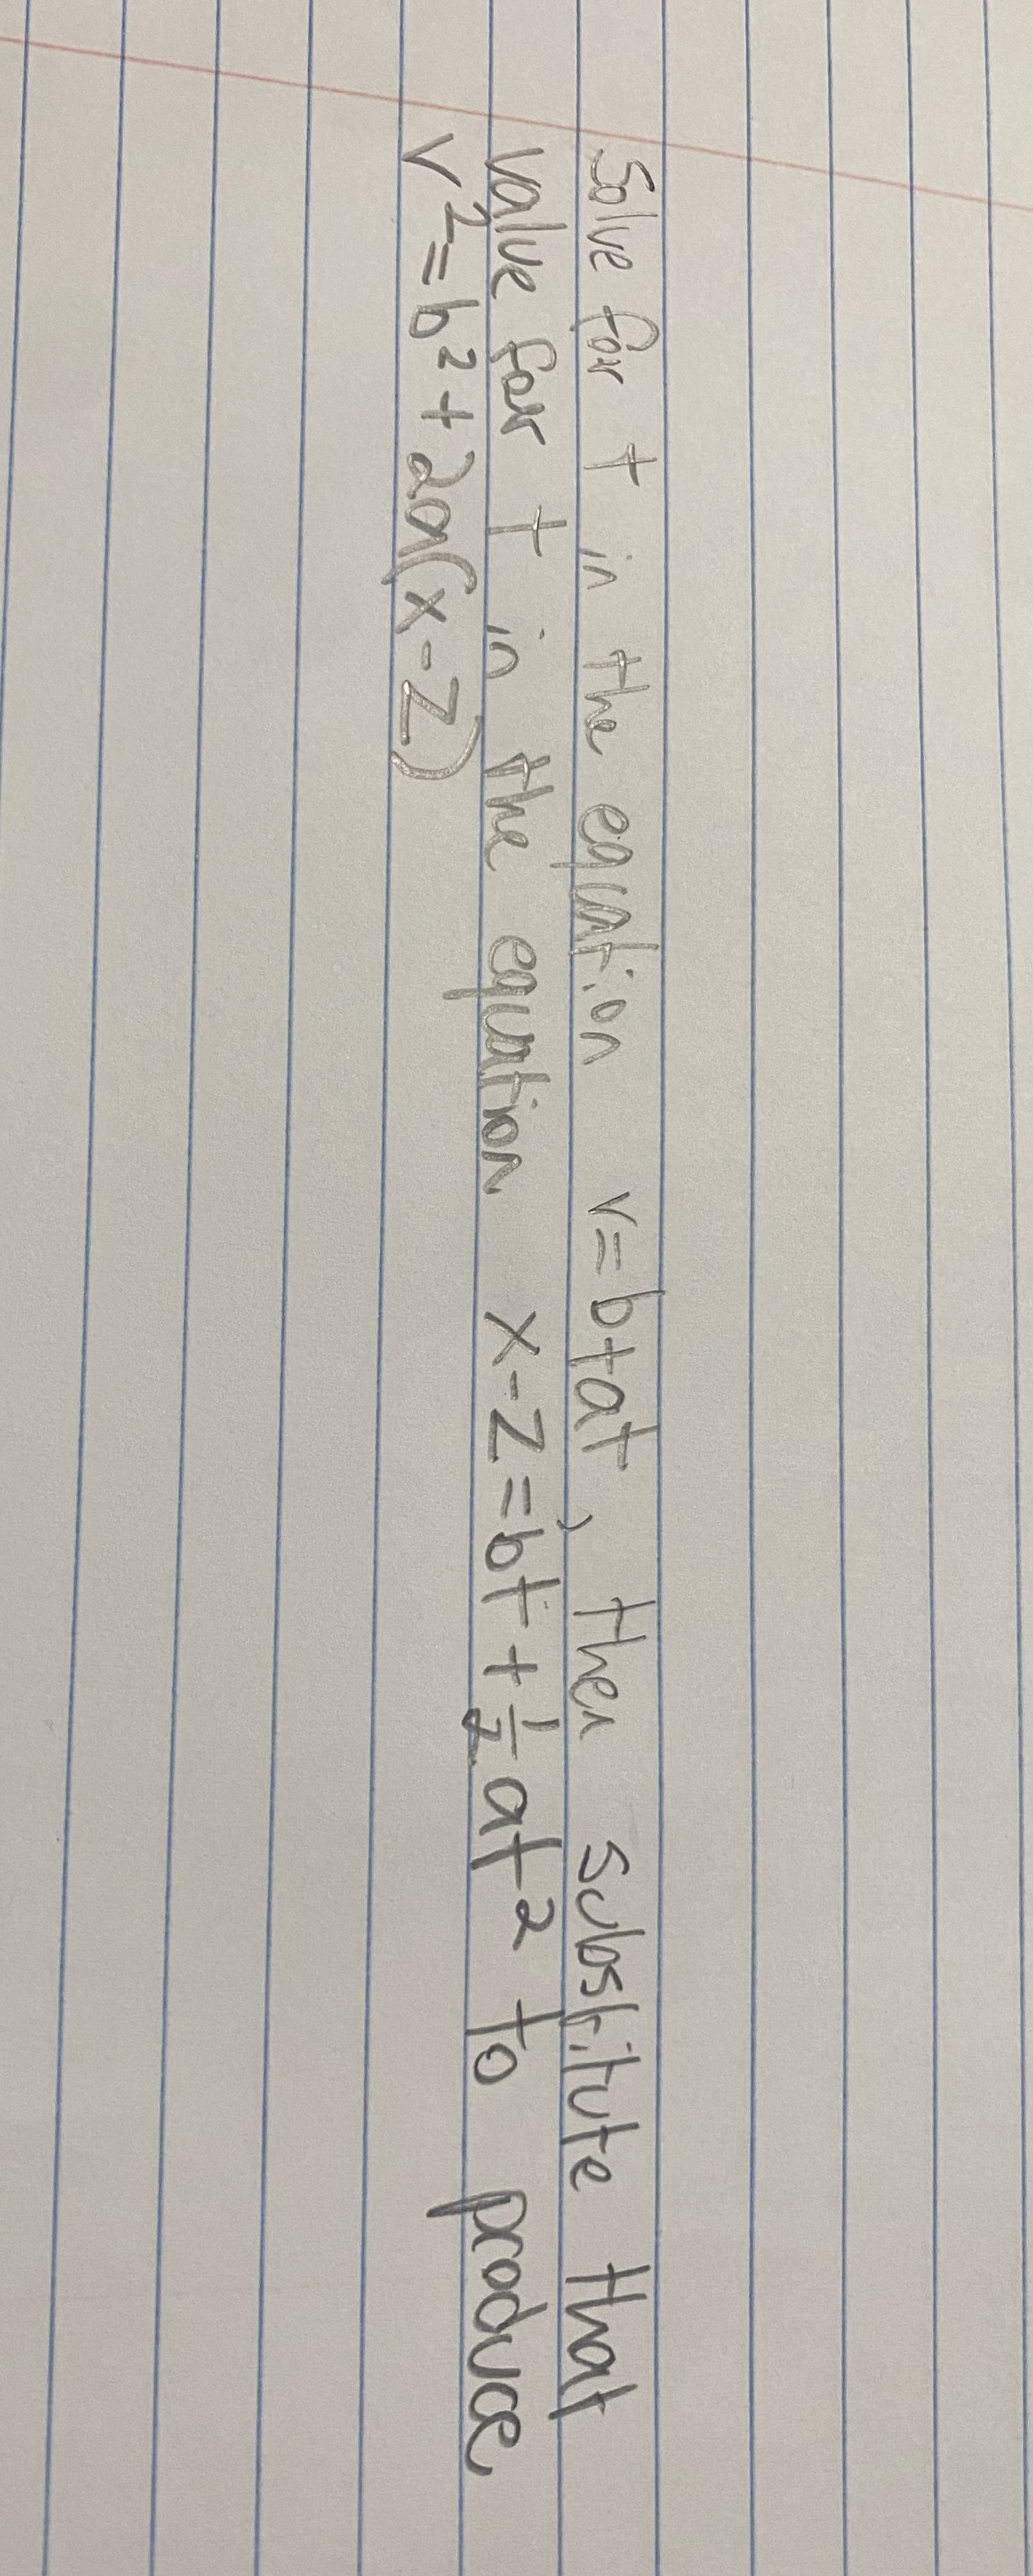 Solve for t in the equation v=b+at, then substitute that
value for t in the equation x-z=bt+½at² to produce
v²=b²+2a(x-z)